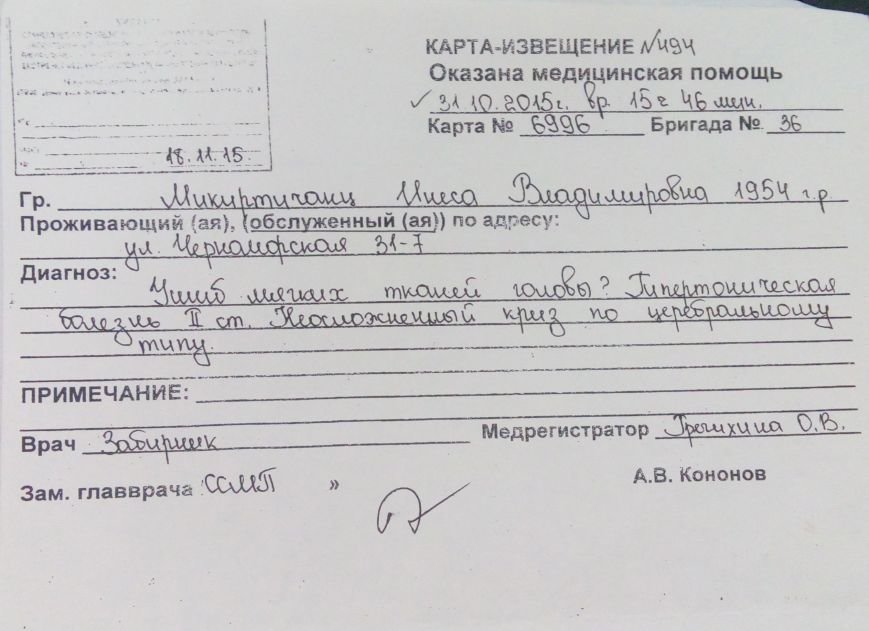 18.11.15.
КАРТА-ИЗВЕЩЕНИЕ №494
Оказана медицинская помощь
✓ 31.10.2015г. вр. 15ч 46 мин.
Карта № 6996 Бригада № 36
Гр. Микиртичанц Инеса Владимировна 1954 г.р
Проживающий (ая), (обслуженный (ая)) по адресу:
ул. 31-7
Диагноз:
Ушиб мягких тканей головы? Гипертоническая
болезнь II ст. Неосложненный криз по церебральному
типу.
ПРИМЕЧАНИЕ:
Врач Медрегистратор Гречихина О.В.
Зам. главврача ССМП » А.В. Кононов